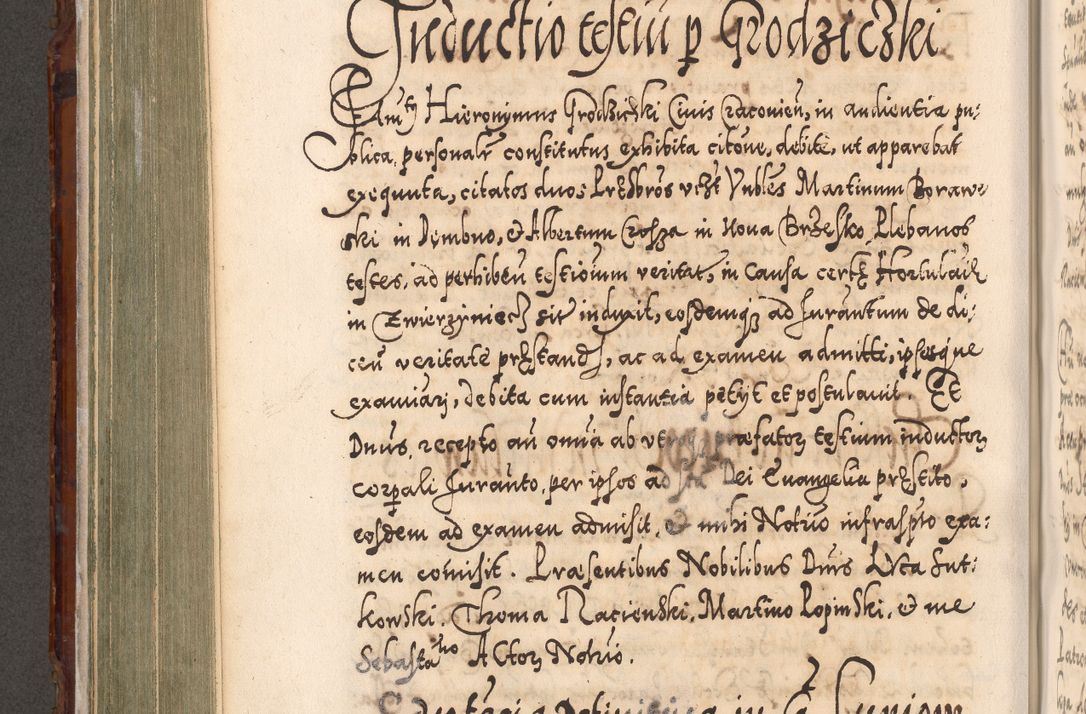 Inductio testiũ p Grodziczki
Famtꝰ Hieronymus Grodziczki Ciuis Cracovieñ, in audientia pu-
blica, personalr̃ constitutus, exhibita citõne, debitè, ut apparebat
exequuta, citatos duos Prẽsbr̃os vczt Vnbles Martinum Boraw-
ski in Dymbno, & Albertum Crosza in Noua Brzesko, Plebanos
testes, ad perhibeñ testioĩum veritat, in Causa certę Hortulaniæ
in Zwierzyniecz sit induxit, eosdemqꝫ ad Iurantum de di-
ceñ veritatè pręstand, ac ad examen admitti, ipsosque
examĩari, debita cum instantia petijt et postulauit. Et
Dnũs, recepto añ omĩa ab præfatoꝝ testium inductoꝝ
corpali Iurãnto, per ipsos ad Dei Euangelia pręstito,
eosdem ad examen admisit, & mihi Notrio infrasp̃to exa:
men com̃isit. Præsentibus Nobilibus Dnis Luca Sut-
kowski, Thoma Racienski, Martino Lopinski, & me
Sebastiano Actoꝝ Notrio.
in Ca